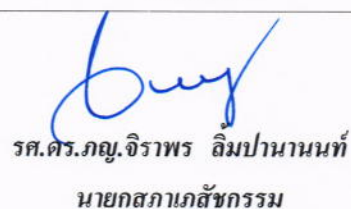 รศ.ดร.ภญ.จิราพร ลิ้มปานานนท์
นายกสภาเภสัชกรรม